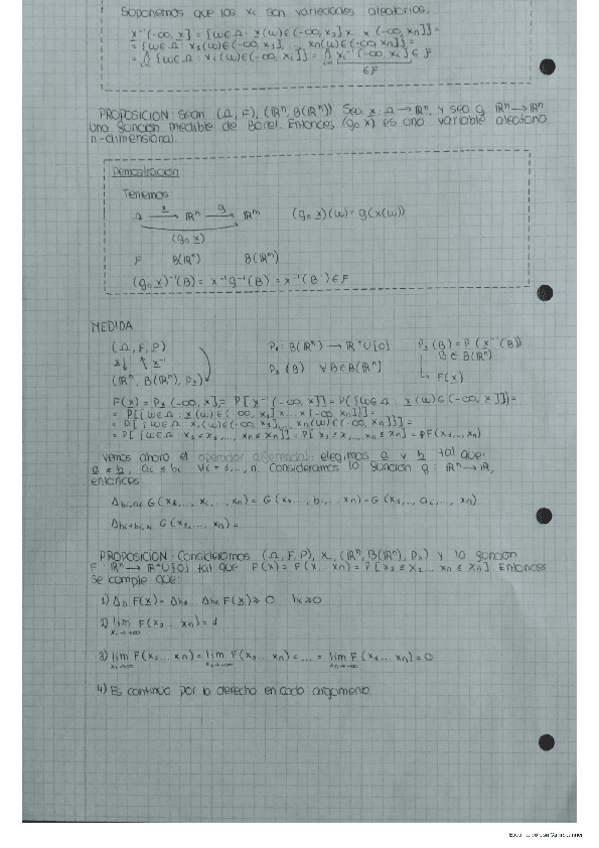 Suponemos que las xi son variedades aleatorias.
x⁻¹(-∞, x] = {w∈Ω : x(w)∈(-∞, x1] x...x (-∞, xn]} =
= {w∈Ω : x1(w)∈(-∞, x1], ..., xn(w)∈(-∞, xn]} =
= ∩ {w∈Ω : xi(w)∈(-∞, xi]} = ∩ xi⁻¹(-∞, xi] ∈ F
∈F
PROPOSICION Sean (Ω, F), (ℝⁿ, B(ℝⁿ)) Sea x: Ω → ℝⁿ, y sea g ℝⁿ→ℝᵐ
una función medible de Borel. Entonces (g∘x) es una variable aleatoria
n-dimensional.
Demostración
Tenemos:
Ω →x ℝⁿ →g ℝᵐ (g∘x)(w) = g(x(w))
(g∘x)
F B(ℝⁿ) B(ℝᵐ)
(g∘x)⁻¹(B) = x⁻¹g⁻¹(B) = x⁻¹(B) ∈ F
MEDIDA
(Ω, F, P) Px : B(ℝⁿ) → ℝ⁺∪{0} Px(B) = P(x⁻¹(B))
x↓ ↑x⁻¹ Px(B) ∀B∈B(ℝⁿ) B∈B(ℝⁿ)
(ℝⁿ, B(ℝⁿ), Px) → F(x)
F(x) = Px(-∞, x] = P[x⁻¹(-∞, x]] = P[{w∈Ω : x(w)∈(-∞, x]}] =
= P[{w∈Ω : x(w)∈(-∞, x1] x...x (-∞, xn]}] =
= P[{w∈Ω : x1(w)∈(-∞, x1], ..., xn(w)∈(-∞, xn]}] =
= P[{w∈Ω x1≤x1, ..., xn≤xn}] = P[x1≤x1, ..., xn≤xn] = F(x1, ..., xn)
Vemos ahora el operador diferencial: elegimos a y b tal que:
a ≤ b, ai ≤ bi ∀i = 1, ..., n. Consideramos la función g: ℝⁿ→ℝ,
entonces:
Δbi,ai G(x1, ..., xi, ..., xn) = G(x1, ..., bi, ..., xn) - G(x1, ..., ai, ..., xn)
G(x1, ..., xn) =
PROPOSICION: Consideramos (Ω, F, P), x, (ℝⁿ, B(ℝⁿ), Px) y la función
F: ℝⁿ → ℝ⁺∪{0} tal que F(x) = F(x1...xn) = P[x1≤x1...xn≤xn]. Entonces
se cumple que:
1) Δh F(x) = Δh1...Δhn F(x) ≥ 0 hi≥0
2) lim F(x1...xn) = 1
xi→+∞
3) lim F(x1...xn) = lim F(x1...xn) = ... = lim F(x1...xn) = 0
4) Es continua por la derecha en cada argumento.